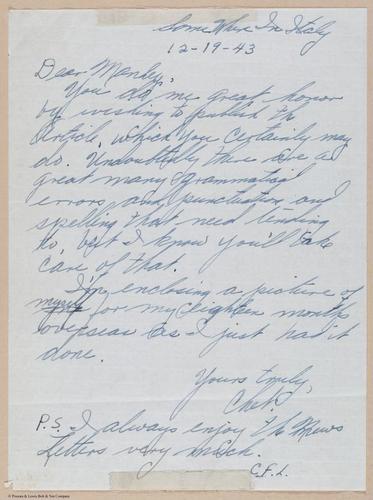 Some Where In Italy
12-19-43
Dear Manley,
You do me great honor
by wishing to publish the
Article, which you certainly may
do. Undoubtedly there are a
great many grammatical
errors and punctuation and
spelling that need tending
to, but I know you'll take
care of that.
I'm enclosing a picture of
myself for my eighteen months
overseas as I just had it
done.
Yours truly,
Chet.
P.S. I always enjoy the News
Letters very much.
C.F.L.
© Procter & Lewis Bolt & Nut Company